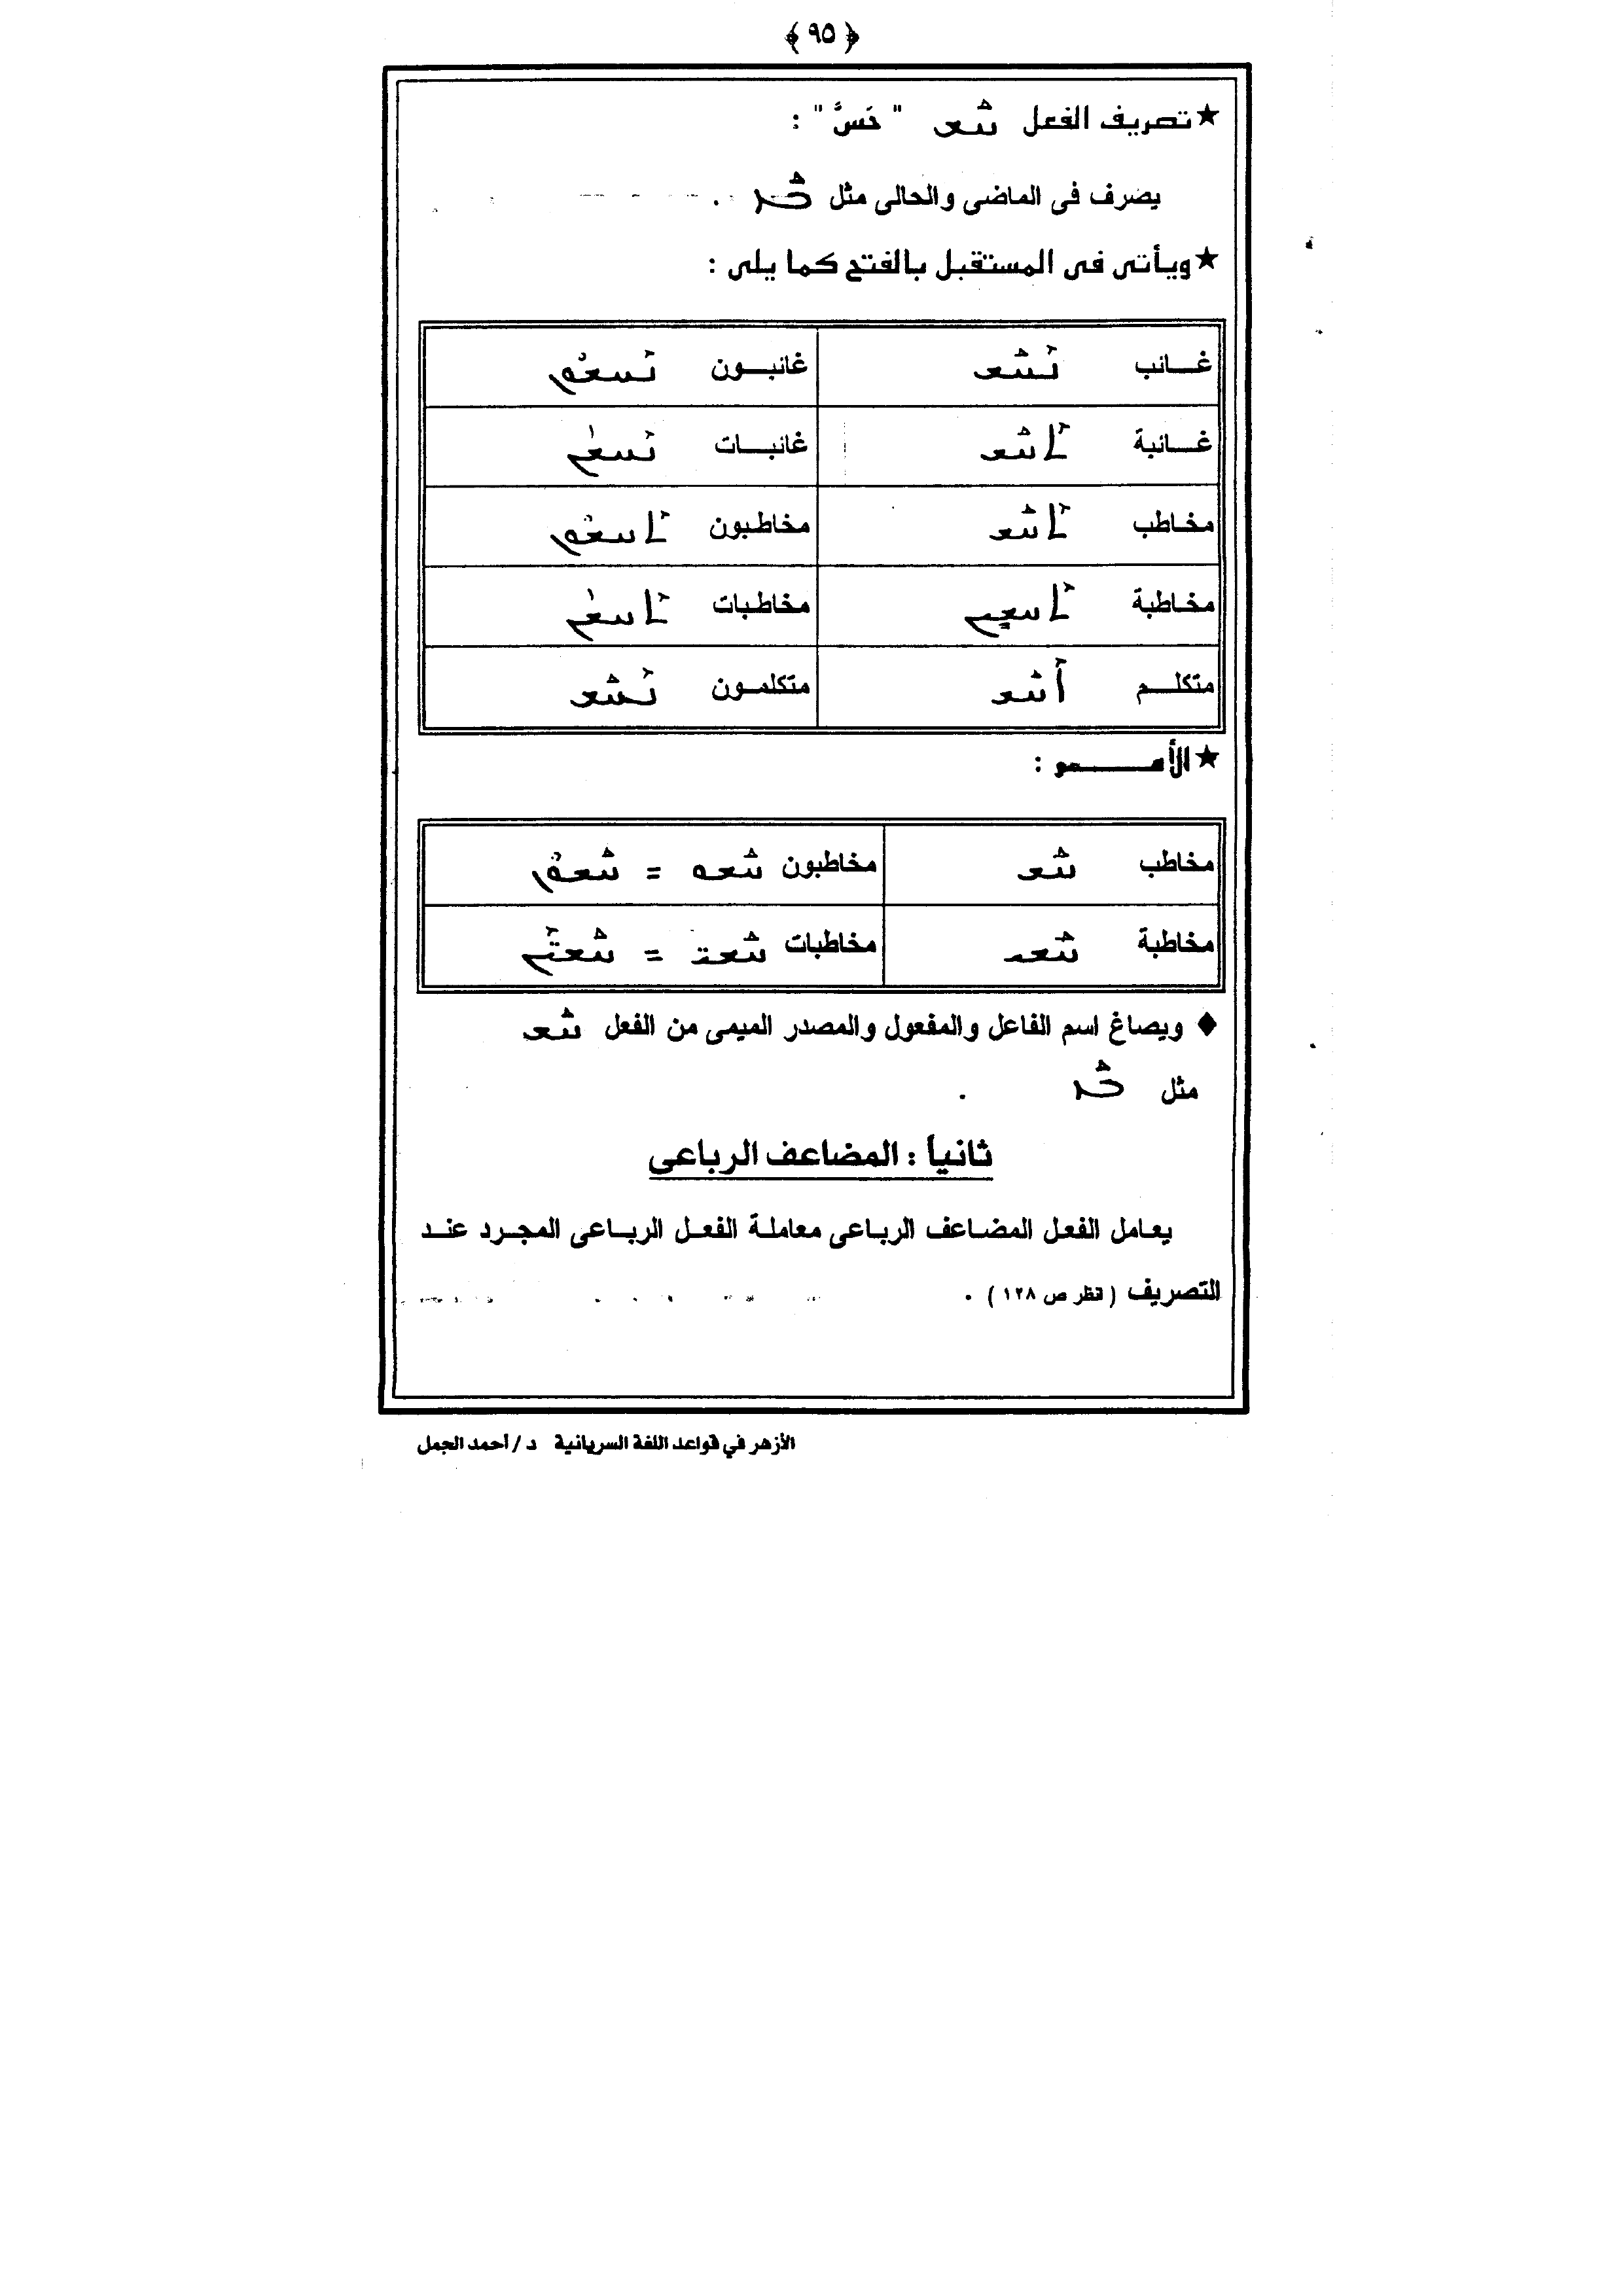 ﴿ ٩٥ ﴾
★ تصريف الفعل ܚܰܫ " حَسَّ " :
يصرف فى الماضى والحالى مثل ܒܰܙ .
★ ويأتى فى المستقبل بالفتح كما يلى :
غائب ܢܶܚܰܫ غائبون ܢܶܚܫܽܘܢ
غائبة ܬܶܚܰܫ غائبات ܢܶܚܫܳܢ
مخاطب ܬܶܚܰܫ مخاطبون ܬܶܚܫܽܘܢ
مخاطبة ܬܶܚܫܺܝܢ مخاطبات ܬܶܚܫܳܢ
متكلم ܐܶܚܰܫ متكلمون ܢܶܚܰܫ
★ الأمر :
مخاطب ܚܰܫ مخاطبون ܚܰܫܘ = ܚܰܫܽܘܢ
مخاطبة ܚܰܫܝ مخاطبات ܚܰܫܝ̈ = ܚܰܫܶܝ̈ܢ
♦ ويصاغ اسم الفاعل والمفعول والمصدر الميمى من الفعل ܚܰܫ
مثل ܒܰܙ .
ثانياً : المضاعف الرباعى
يعامل الفعل المضاعف الرباعى معاملة الفعل الرباعى المجرد عند
التصريف ( انظر ص ١٢٨ ) .
الأزهر في قواعد اللغة السريانية د/ أحمد الجمل